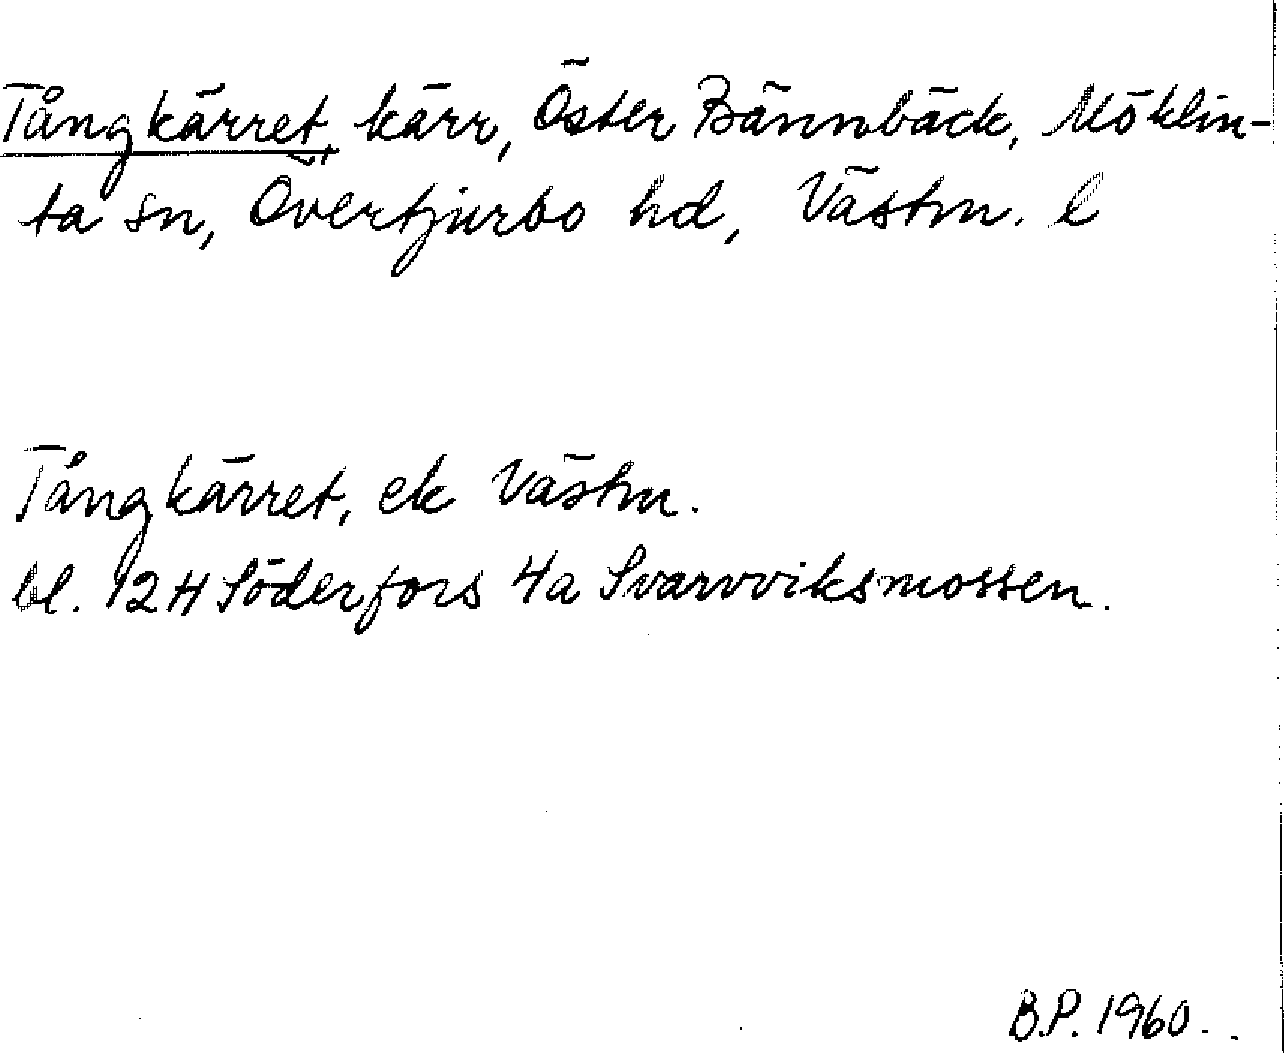 Tångkärret, kärr, Öster Bännbäck, Möklin-
ta sn, Övertjurbo hd, Västm. l
Tångkärret, ek Västm.
bl. 12H Söderfors 4a Svarvviksmossen.
B.P. 1960.